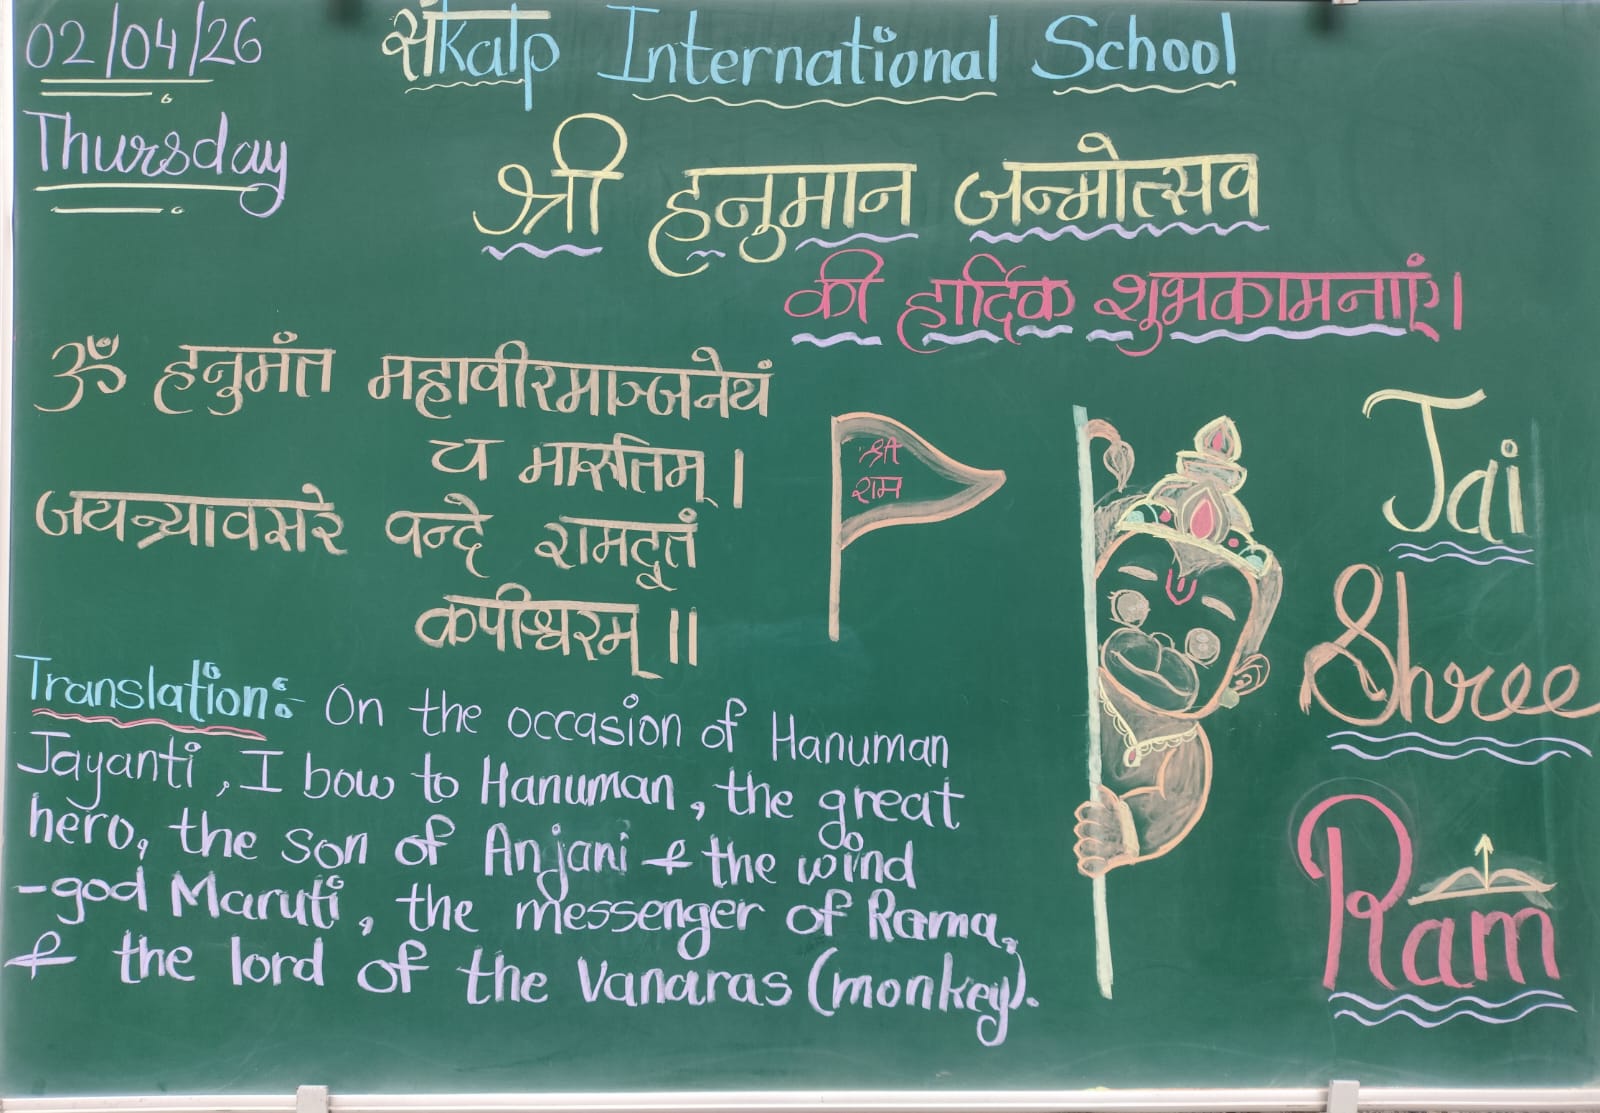 02/04/26
संkalp International School
Thursday
श्री हनुमान जन्मोत्सव
की हार्दिक शुभकामनाएं।
ॐ हनुमंत महावीरमाञ्जनेयं
च मारुतिम्।
जयन्त्यावसरे वन्दे रामदूतं
कपीश्वरम्॥
श्री
राम
Jai
Shree
Ram
Translation:- On the occasion of Hanuman
Jayanti, I bow to Hanuman, the great
hero, the son of Anjani & the wind
-god Maruti, the messenger of Rama,
& the lord of the Vanaras (monkey).